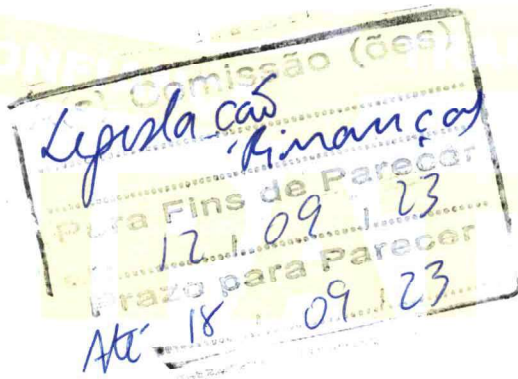 (s) Comissão (ões)
Legislação
Finanças
Para Fins de Parecer
12 / 09 / 23
Prazo para Parecer
Até 18 / 09 / 23